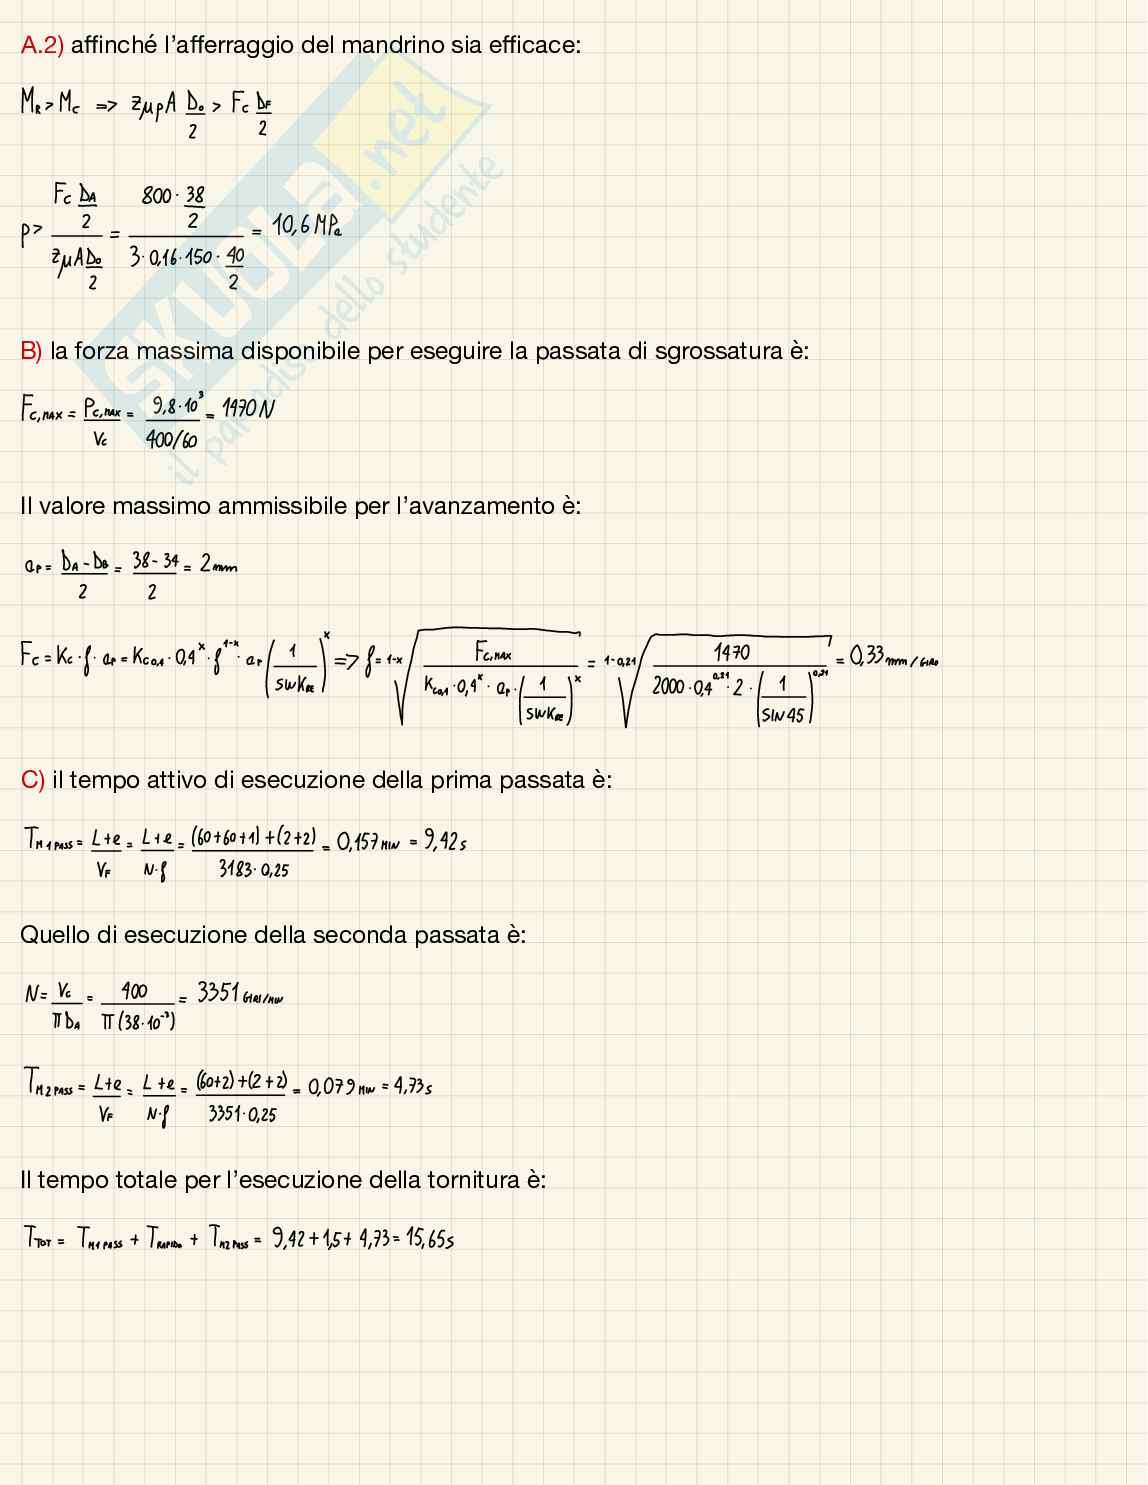 A.2) affinché l'afferraggio del mandrino sia efficace:
M_R > M_C => zμpA D_0/2 > F_C D_F/2
p > (F_C D_A/2)/(zμA D_0/2) = (800 · 38/2)/(3 · 0,16 · 150 · 40/2) = 10,6 MPa
B) la forza massima disponibile per eseguire la passata di sgrossatura è:
F_C,MAX = P_C,MAX/V_C = 9,8·10³/(400/60) = 1470 N
Il valore massimo ammissibile per l'avanzamento è:
a_P = (D_A - D_B)/2 = (38 - 34)/2 = 2 mm
F_C = K_C · f · a_P = K_C0,4 · 0,4^x · f^(1-x) · a_P (1/SIN K_RE)^x => f = ^(1-x)√(F_C,MAX/(K_C0,4 · 0,4^x · a_P · (1/SIN K_RE)^x)) = ^(1-0,21)√(1470/(2000 · 0,4^0,21 · 2 · (1/SIN 45)^0,21)) = 0,33 mm/GIRO
C) il tempo attivo di esecuzione della prima passata è:
T_M 1 PASS = (L+e)/V_F = (L+e)/(N·f) = ((60+60+1)+(2+2))/(3183·0,25) = 0,157 MIN = 9,42 s
Quello di esecuzione della seconda passata è:
N = V_C/(π D_A) = 400/(π(38·10⁻³)) = 3351 GIRI/MIN
T_M 2 PASS = (L+e)/V_F = (L+e)/(N·f) = ((60+2)+(2+2))/(3351·0,25) = 0,079 MIN = 4,73 s
Il tempo totale per l'esecuzione della tornitura è:
T_TOT = T_M1 PASS + T_RAPIDO + T_M2 PASS = 9,42 + 1,5 + 4,73 = 15,65 s
SKUOLA.net
il paradiso dello studente